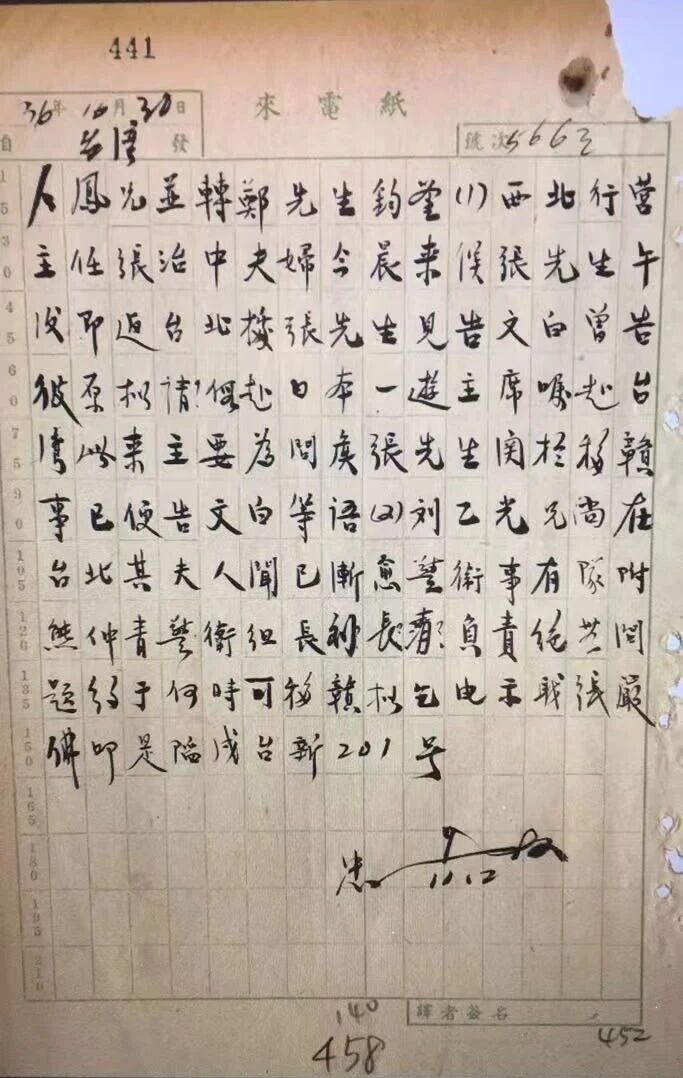 441
來電紙
36年10月30日
自台灣發
號次
人鳳兄並轉鄭先生鈞鉴(1)西北行营
主任張治中夫婦今晨来候張先生午
後即返台北據張先生見告文白曾告
彼原拟請?假赴日本一遊主席囑赴台
灣此来主要為問候張先生関於移贛
事已便告文白等語(2)刘乙光兄尚在
台北其夫人聞已漸愈警衛事有隊附
熊仲青警衛组長 負責绝無問
题約于何時可移贛拟乞电示職張嚴
佛叩 陷戌台新201号
11.12
譯者簽名
140
458
452
15
30
45
60
75
90
105
120
135
150
165
180
195
210